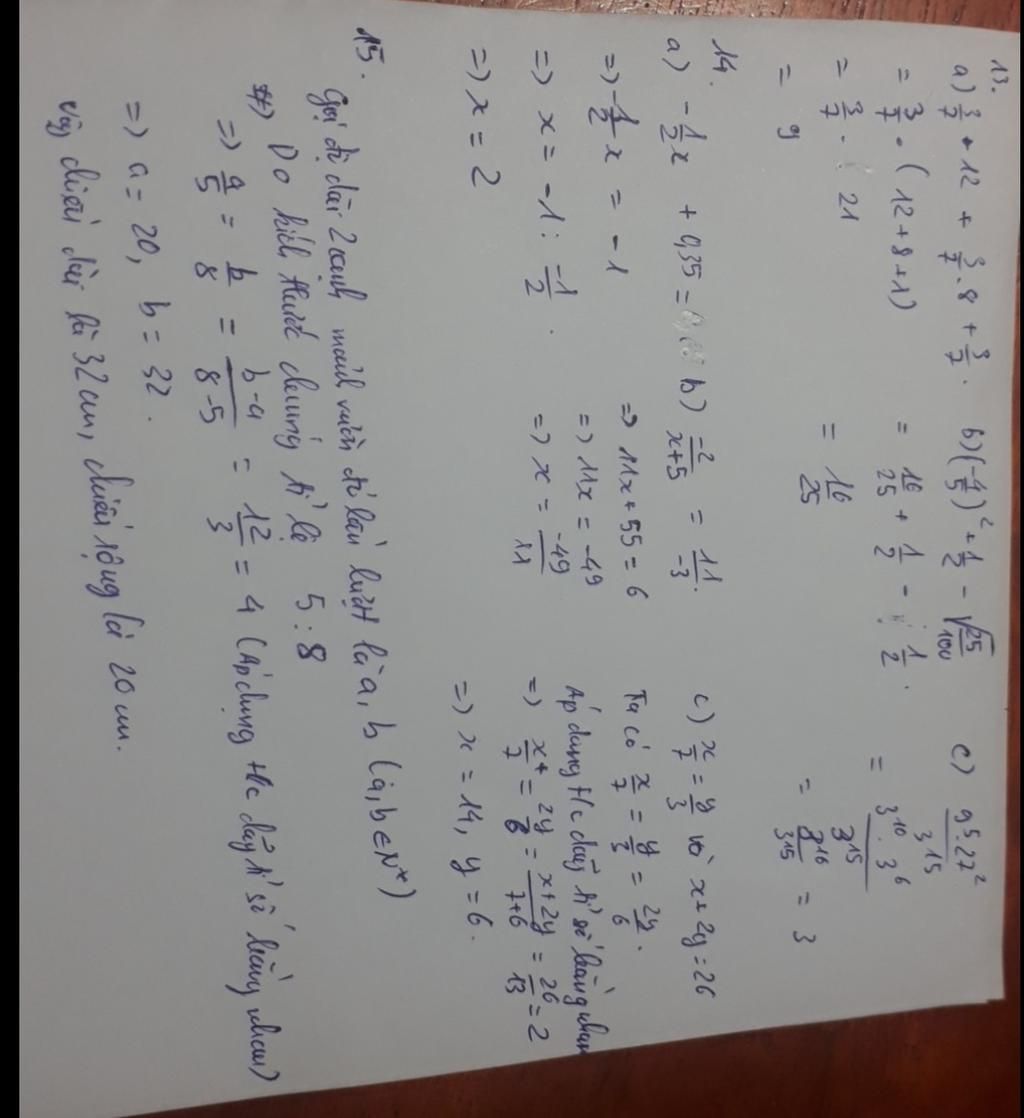 13.
a) 3/7 . 12 + 3/7 . 8 + 3/7 .
= 3/7 . (12 + 8 + 1)
= 3/7 . 21
= 9
b) (-4/5)² + 1/2 - √25/100
= 16/25 + 1/2 - 1/2 .
= 16/25
c) 9⁵.27²/3¹⁵
= 3¹⁰.3⁶/3¹⁵
= 3¹⁶/3¹⁵ = 3
14.
a) -1/2x + 0,35 =
=> -1/2x = -1
=> x = -1 : -1/2 .
=> x = 2
b) -2/x+5 = 11/-3 .
=> 11x + 55 = 6
=> 11x = -49
=> x = -49/11
c) x/7 = y/3 và x + 2y = 26
Ta có x/7 = y/3 = 2y/6 .
Áp dụng t/c dãy tỉ số bằng nhau
=> x/7 = 2y/6 = x+2y/7+6 = 26/13 = 2
=> x = 14, y = 6 .
15.
Gọi độ dài 2 cạnh mảnh vườn đó lần lượt là a, b (a, b ∈ N*)
=> Do kích thước chúng tỉ lệ 5 : 8
=> a/5 = b/8 = b-a/8-5 = 12/3 = 4 (Áp dụng t/c dãy tỉ số bằng nhau)
=> a = 20, b = 32 .
Vậy chiều dài là 32 cm, chiều rộng là 20 cm.